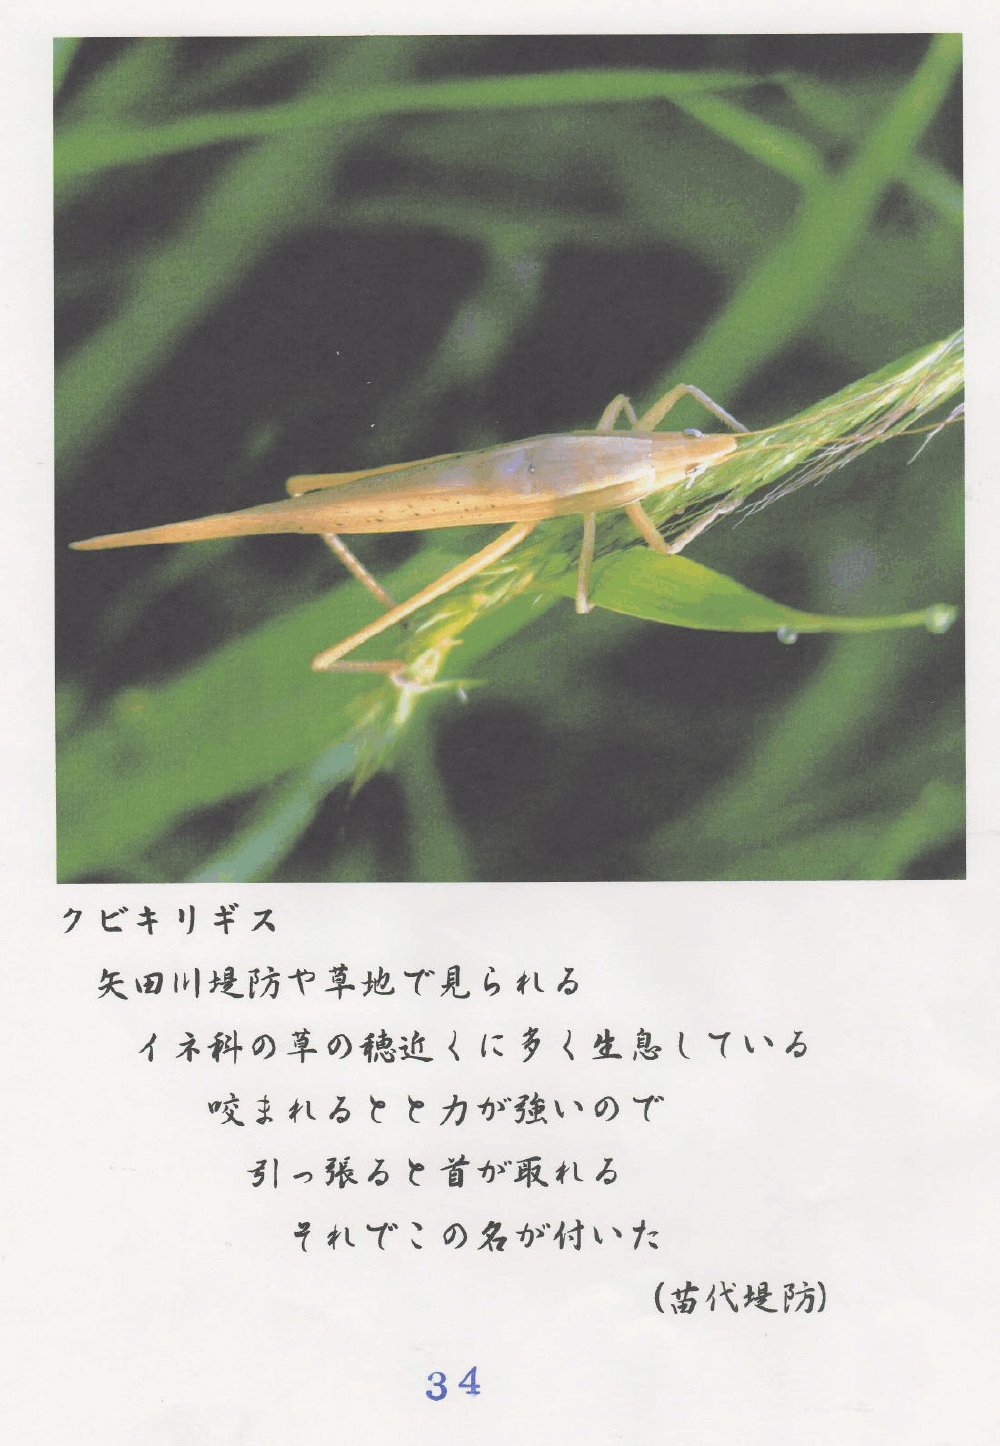 クビキリギス
矢田川堤防や草地で見られる
イネ科の草の穂近くに多く生息している
咬まれるとと力が強いので
引っ張ると首が取れる
それでこの名が付いた
(苗代堤防)
34